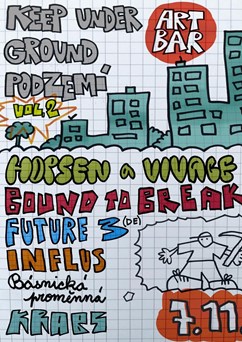 KEEP UNDER
GROUND
PODZEMÍ
VOL 2
ART
BAR
HOPSEN a VIVAGE
BOUND TO BREAK
FUTURE 3 (DE)
INFLUS
Básnická
proměnná
KRABS
7.11